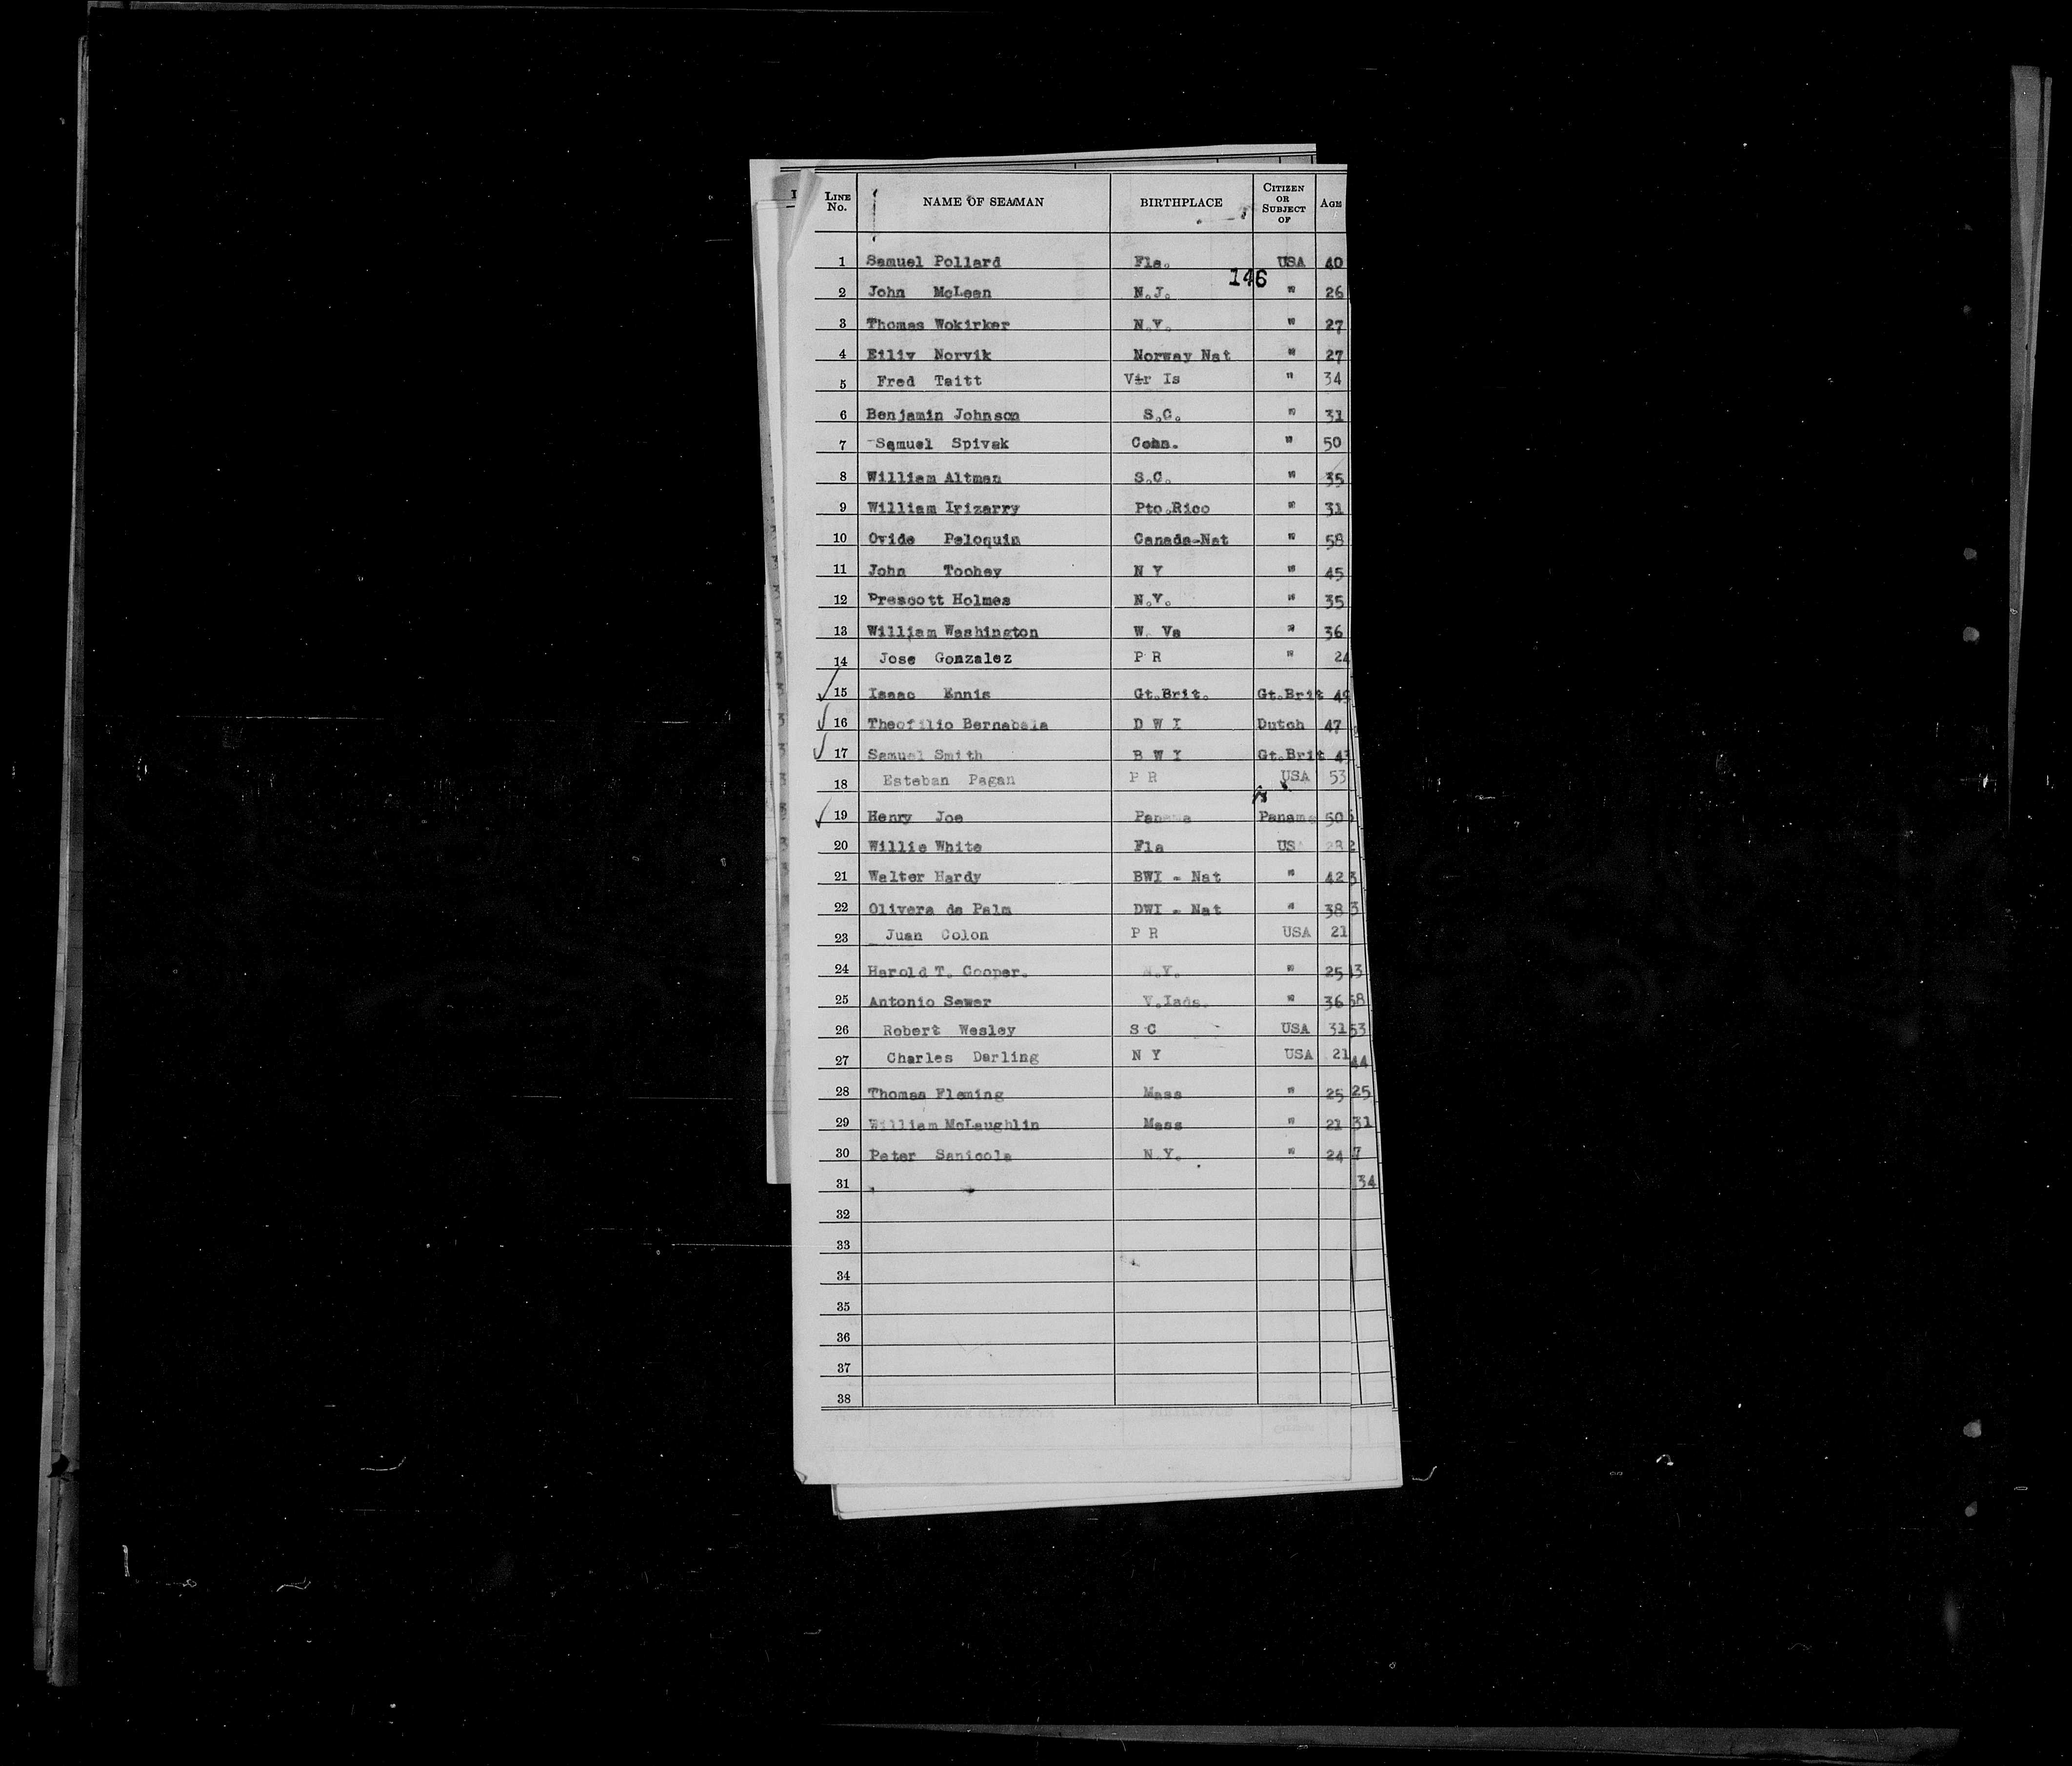 LINE No. NAME OF SEAMAN BIRTHPLACE CITIZEN OR SUBJECT OF AGE
1 Samuel Pollard Fla. USA 40
146
2 John McLean N.J. " 26
3 Thomas Wokirker N.Y. " 27
4 Eiliv Norvik Norway Nat " 27
5 Fred Taitt Vir Is " 34
6 Benjamin Johnson S.C. " 31
7 Samuel Spivak Conn. " 50
8 William Altman S.C. " 35
9 William Irizarry Pto.Rico " 31
10 Ovide Peloquin Canada-Nat " 58
11 John Toohey N Y " 45
12 Prescott Holmes N.Y. " 35
13 William Washington W. Va " 36
14 Jose Gonzalez P R " 24
15 Isaac Ennis Gt.Brit. Gt.Brit
16 Theofilio Bernabela D W I Dutch 47
17 Samuel Smith B W I Gt.Brit
18 Esteban Pagan P R USA 53
19 Henry Joe Panama Panama 50
20 Willie White Fla USA
21 Walter Hardy BWI - Nat " 42
22 Olivera de Palm DWI - Nat " 38
23 Juan Colon P R USA 21
24 Harold T. Cooper. N.Y. " 25
25 Antonio Sewer V.Isds. " 36
26 Robert Wesley S C USA 31 53
27 Charles Darling N Y USA 21 44
28 Thomas Fleming Mass " 25 25
29 William McLaughlin Mass " 21 31
30 Peter Sanicola N.Y. " 24 7
31 34
32
33
34
35
36
37
38